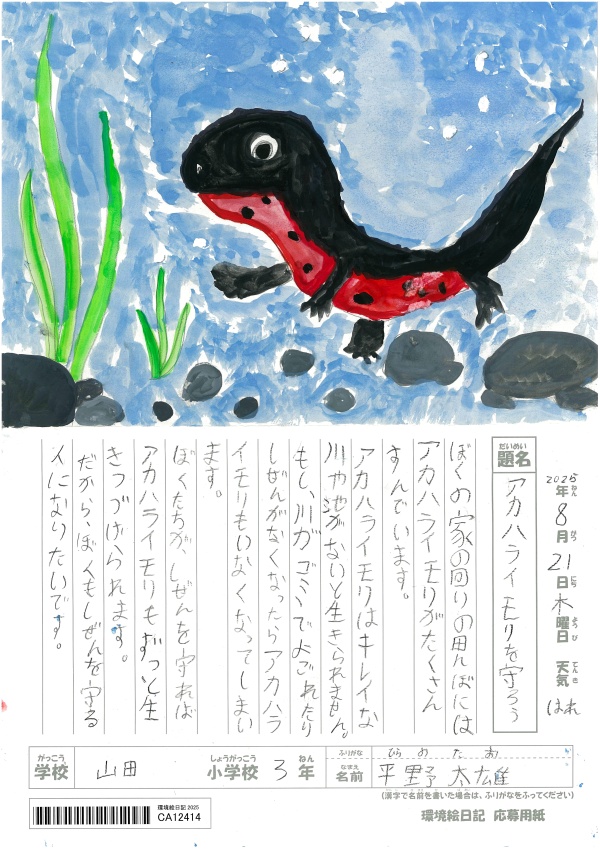 2025年8月21日木曜日 天気 はれ
ねん がつ にち ようび てんき
だいめい
題名 アカハライモリを守ろう
ぼくの家の回りの田んぼには
アカハライモリがたくさん
すんでいます。
アカハライモリはキレイな
川や池がないと生きられません。
もし、川がゴミでよごれたり
しぜんがなくなったらアカハラ
イモリもいなくなってしまい
ます。
ぼくたちが、しぜんを守れば
アカハライモリもずっと生
きつづけられます。
だから、ぼくもしぜんを守る
人になりたいです。
がっこう しょうがっこう ねん
学校 山田 小学校 3年
ふりがな ひらの たお
なまえ
名前 平野 太雄
(漢字で名前を書いた場合は、ふりがなをふってください)
環境絵日記 応募用紙
環境絵日記 2025
CA12414